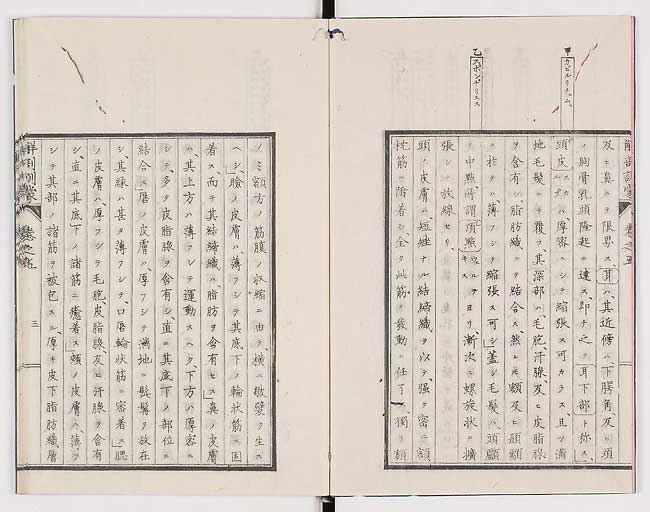 甲
カピルリチュム、
乙
スポンヂリユス
及ヒ鼻ニテ限界ス、耳ハ、其近傍ハ、下腭角及ヒ頚
ノ胸骨乳頭隆起ニ達ス、即チ之ヲ耳下部ト称ス、
頭皮ハ、厚密ニシテ縮張ス可カラス、且ツ滿
地毛髪ニテ覆フ、其深部ハ毛胞汗腺、及ヒ皮脂腺
ヲ含有シ、脂肪織ニテ結合ス、然レ𪜈額及ヒ顳顬
ニ在テハ、薄フシテ縮張ス可シ、蓋シ毛髪ハ、頭顱
ノ中點所謂頂點ヨリ、漸次ニ螺旋状ニ擴
張シテ放線セリ、
頭ノ皮膚ハ、短姓ナル結締織ヲ以テ、强ク密ニ額
枕筋ニ附着シ全ク此筋ノ發動ニ任ス、獨リ額
解剖訓蒙
巻之五
三
ノミ額方ノ筋腹ノ收縮ニ由テ、横ニ皺襞ヲ生ス
ヘシ、瞼ノ皮膚ハ薄フシテ其底下ノ輪狀筋ニ固
着ス、而テ其結締織ハ、脂肪ヲ含有セス、鼻ノ皮膚
ハ、其上方ハ薄フシテ運動スヘク、下方ハ厚密ニ
シテ、多ク皮脂腺ヲ含有シ、直ニ其底下ノ部位ニ
結合ス、唇ノ皮膚ハ、厚フシテ滿地ニ髭鬚ヲ放在
シ、其緑ハ甚タ薄フシテ、口唇輪狀筋ニ密着ス、腮
ノ皮膚ハ、厚フシテ毛胞、皮脂腺及ヒ汗腺ヲ含有
シ、直ニ其底下ノ諸筋ニ癒着ス、頬ノ皮膚ハ、薄フ
シテ其部ノ諸筋ヲ被包スル、厚キ皮下脂肪織層